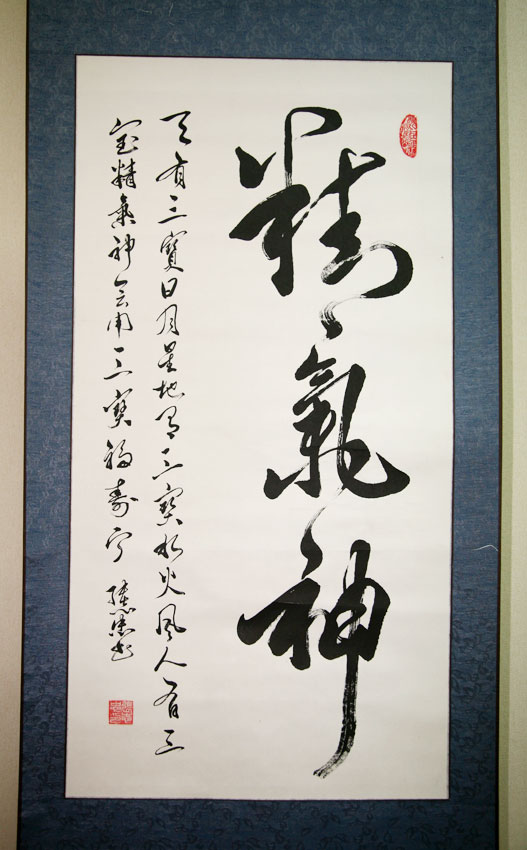 精氣神
天有三寶日月星地有三寶水火風人有三
宝精氣神会用三寶福壽宁